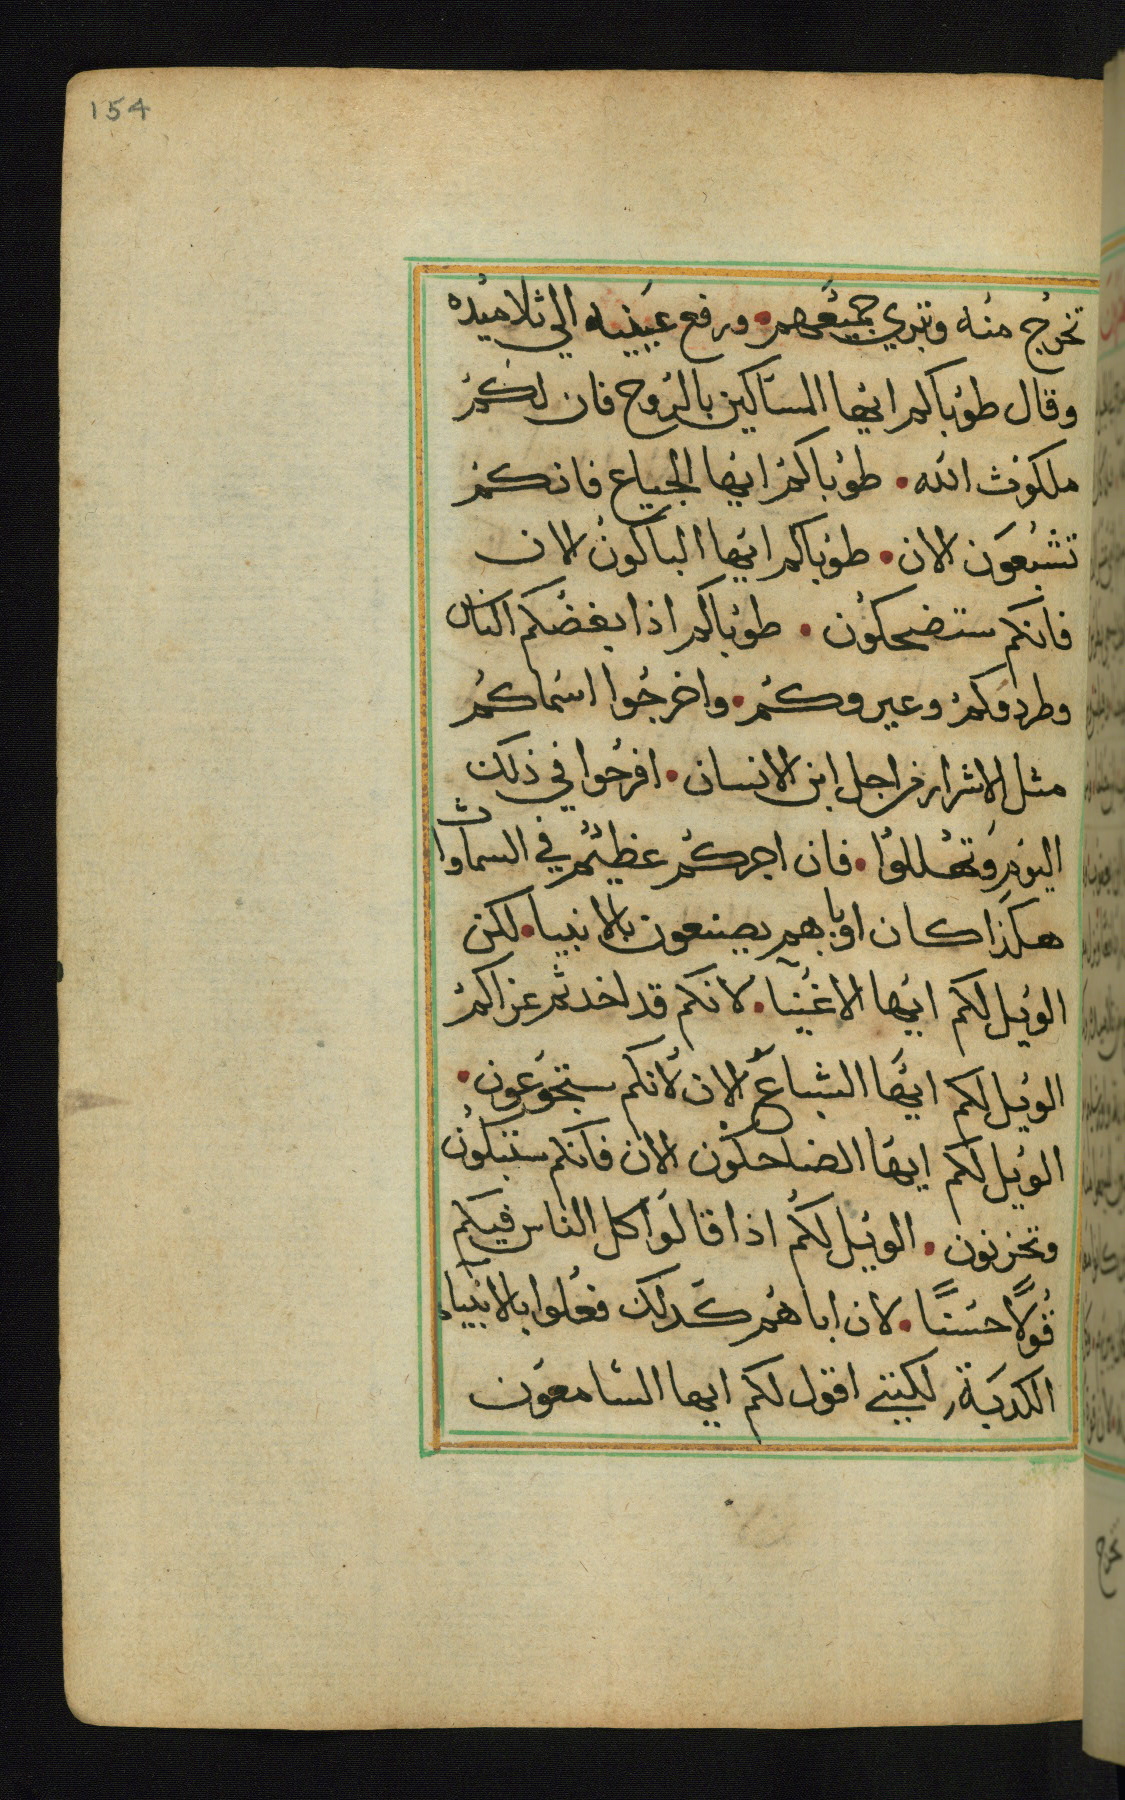 154
تخرج منه وتبري جميعهم • ورفع عينيه الي تلاميده
وقال طوباكم ايها المساكين بالروح فان لكم
ملكوت الله • طوباكم ايها الجياع فانكم
تشبعون الان • طوباكم ايها الباكون الان
فانكم ستضحكون • طوباكم اذا بغضكم الناس
وطردوكم وعيروكم • واخرجوا اسماكم
مثل الاشرار من اجل ابن الانسان • افرحوا في ذلك
اليوم وتهللوا • فان اجركم عظيم في السماوات
هكذا كان اباهم يصنعون بالانبيا • لكن
الويل لكم ايها الاغنيا • لانكم قد اخدتم عزاكم
الويل لكم ايها الشباع الان لانكم ستجوعون •
الويل لكم ايها الضاحكون الان فانكم ستبكون
وتحزنون • الويل لكم اذا قالوا كل الناس فيكم
قولاً حسناً • لان اباهم كدلك فعلوا بالانبياء
الكدبة, لكنني اقول لكم ايها السامعون